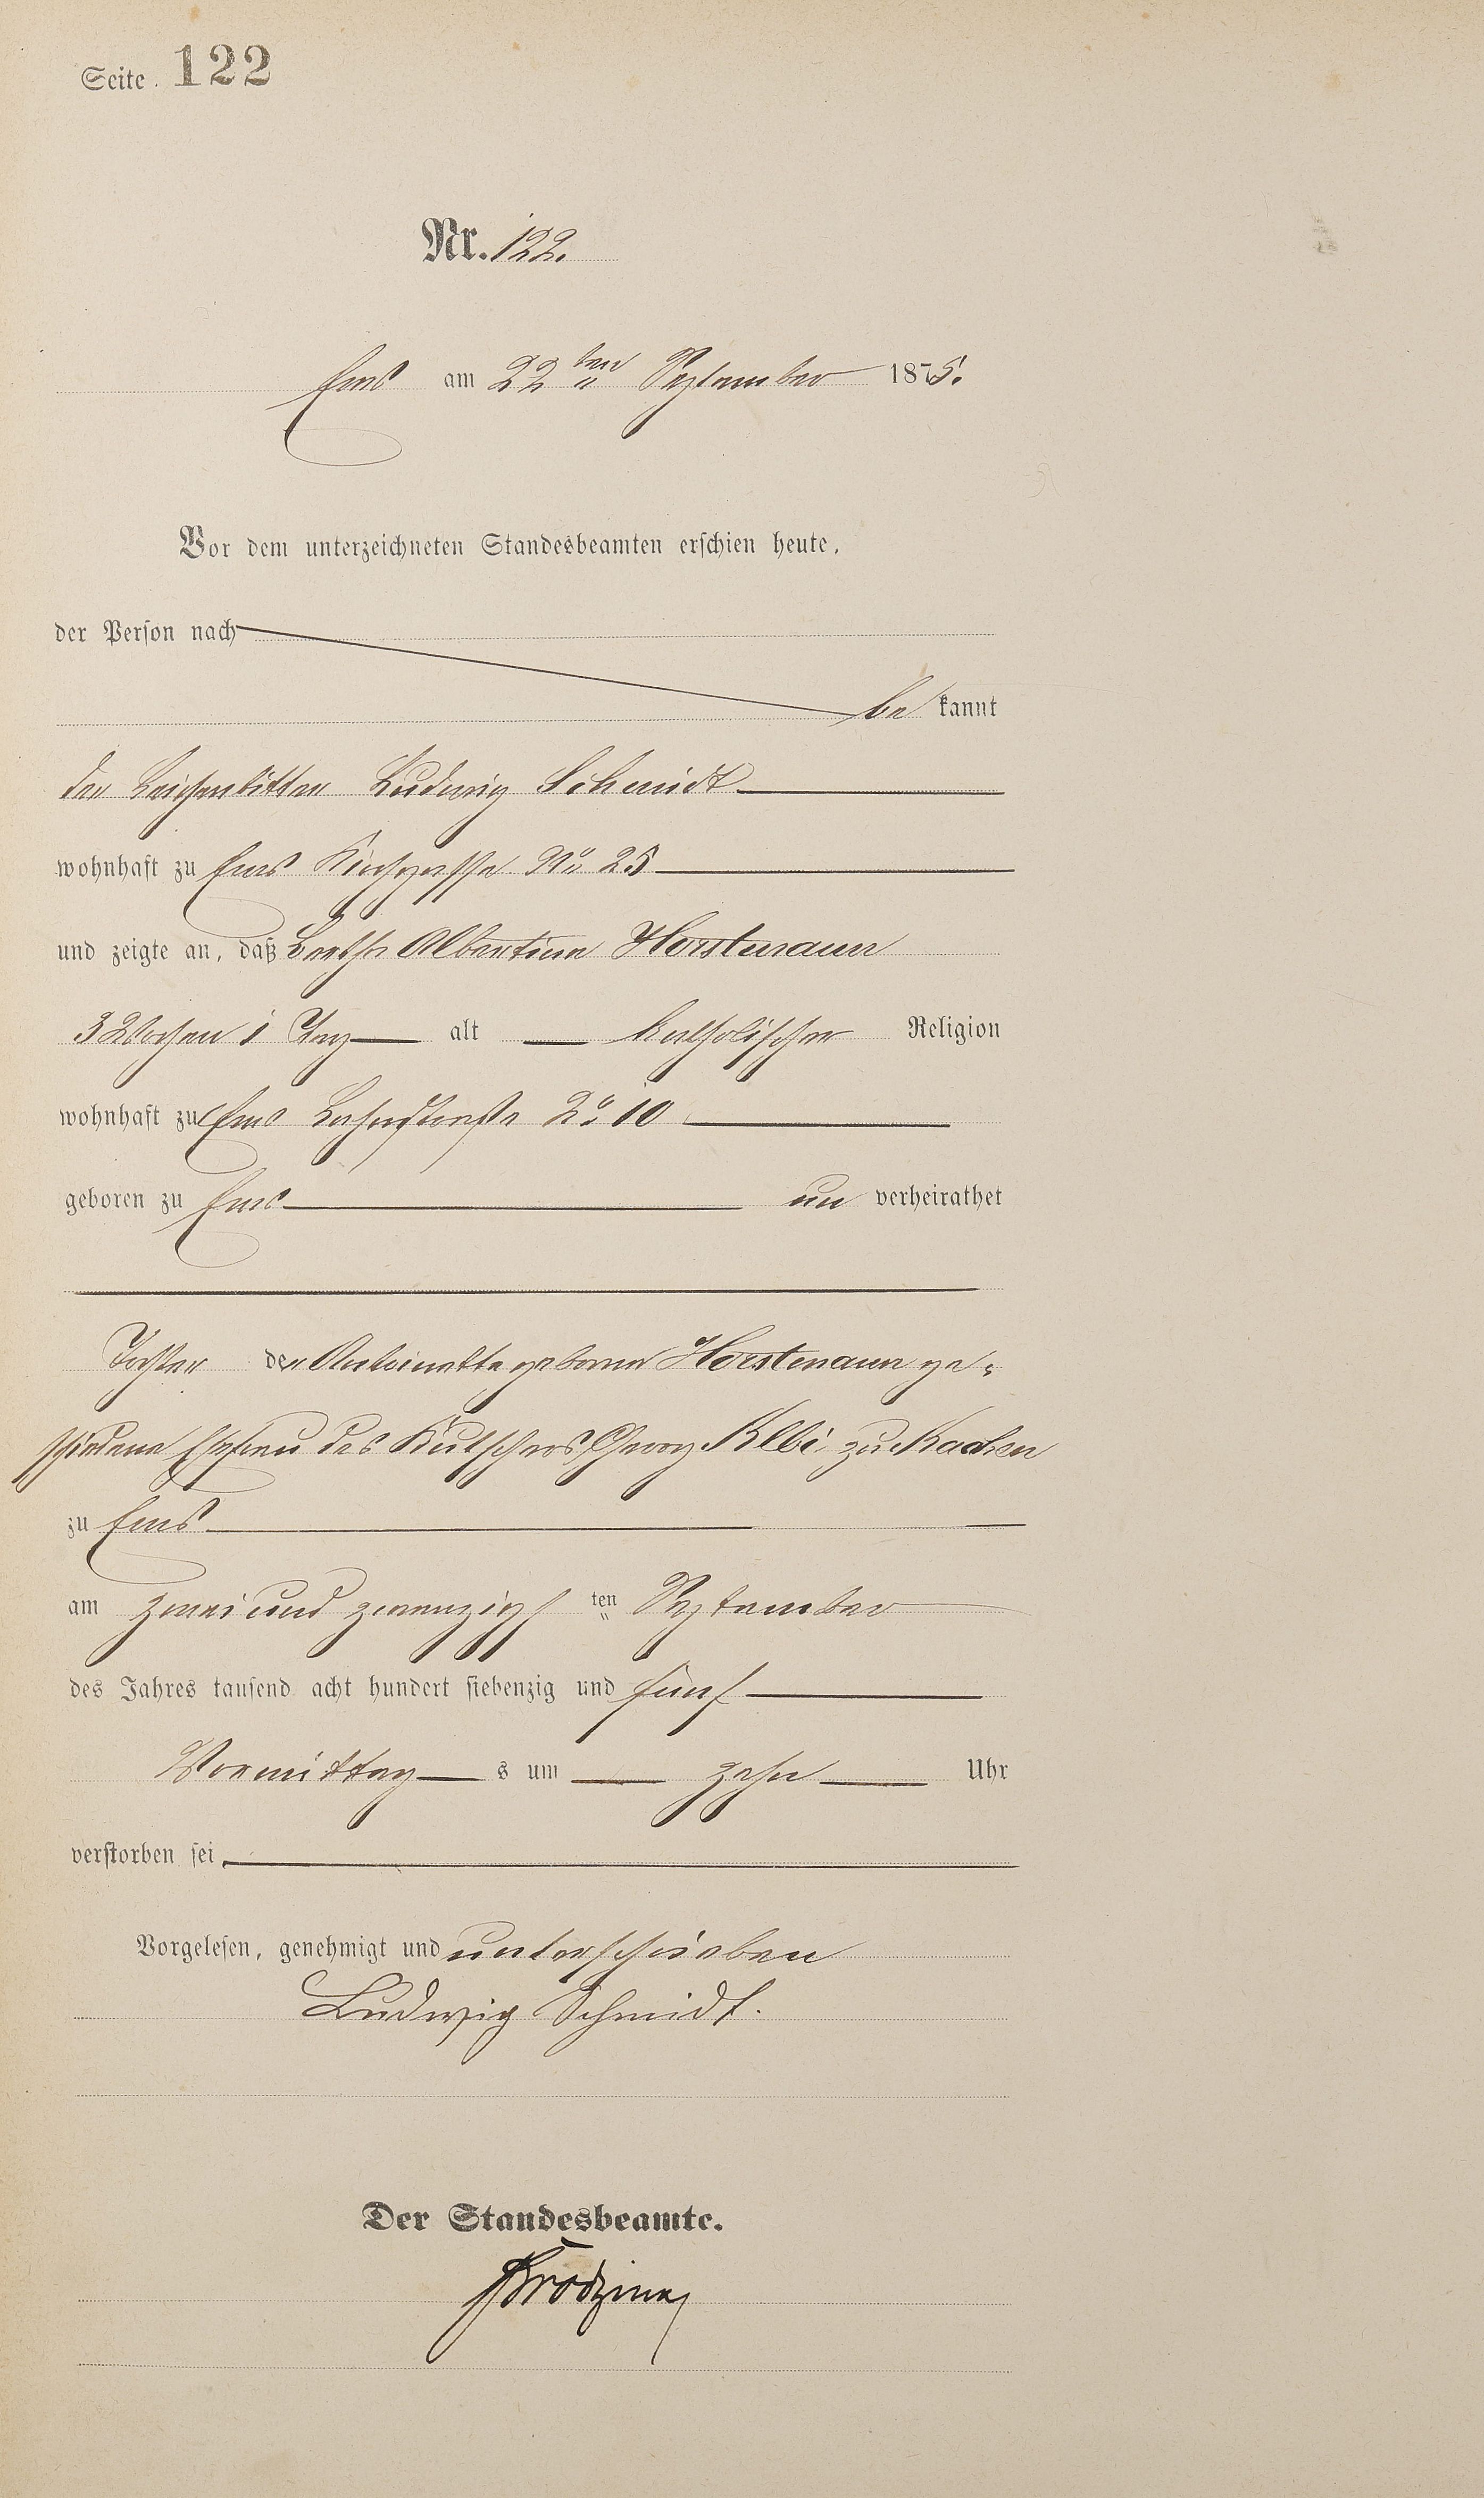 Seite. 122
Nr. 122.
Ems am 22ten September 1875.
Vor dem unterzeichneten Standesbeamten erschien heute,
der Person nach
be kannt
der Leichenbitter Ludwig Schmidt
wohnhaft zu Ems Kirchgasse No 25
und zeigte an, daß Bertha Albertine Horstmann
3 Wochen 1 Tag alt katholischer Religion
wohnhaft zu Ems Lahnstraße No 10
geboren zu Ems un verheirathet
Tochter der Antoinette geborene Horstmann ge-
schiedene Ehefrau des Kutschers Georg zu Aachen
zu Ems
am zwei und zwanzigs ten September
des Jahres tausend acht hundert siebenzig und fünf
Vormittag s um zehn Uhr
verstorben sei.
Vorgelesen, genehmigt und unterschrieben
Ludwig Schmidt.
Der Standesbeamte.